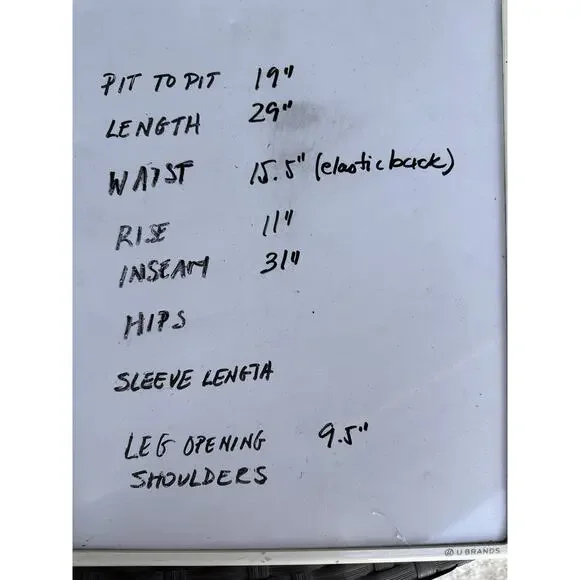 PIT TO PIT 19"
LENGTH 29"
WAIST 15.5" (elastic back)
RISE 11"
INSEAM 31"
HIPS
SLEEVE LENGTH
LEG OPENING 9.5"
SHOULDERS
U BRANDS